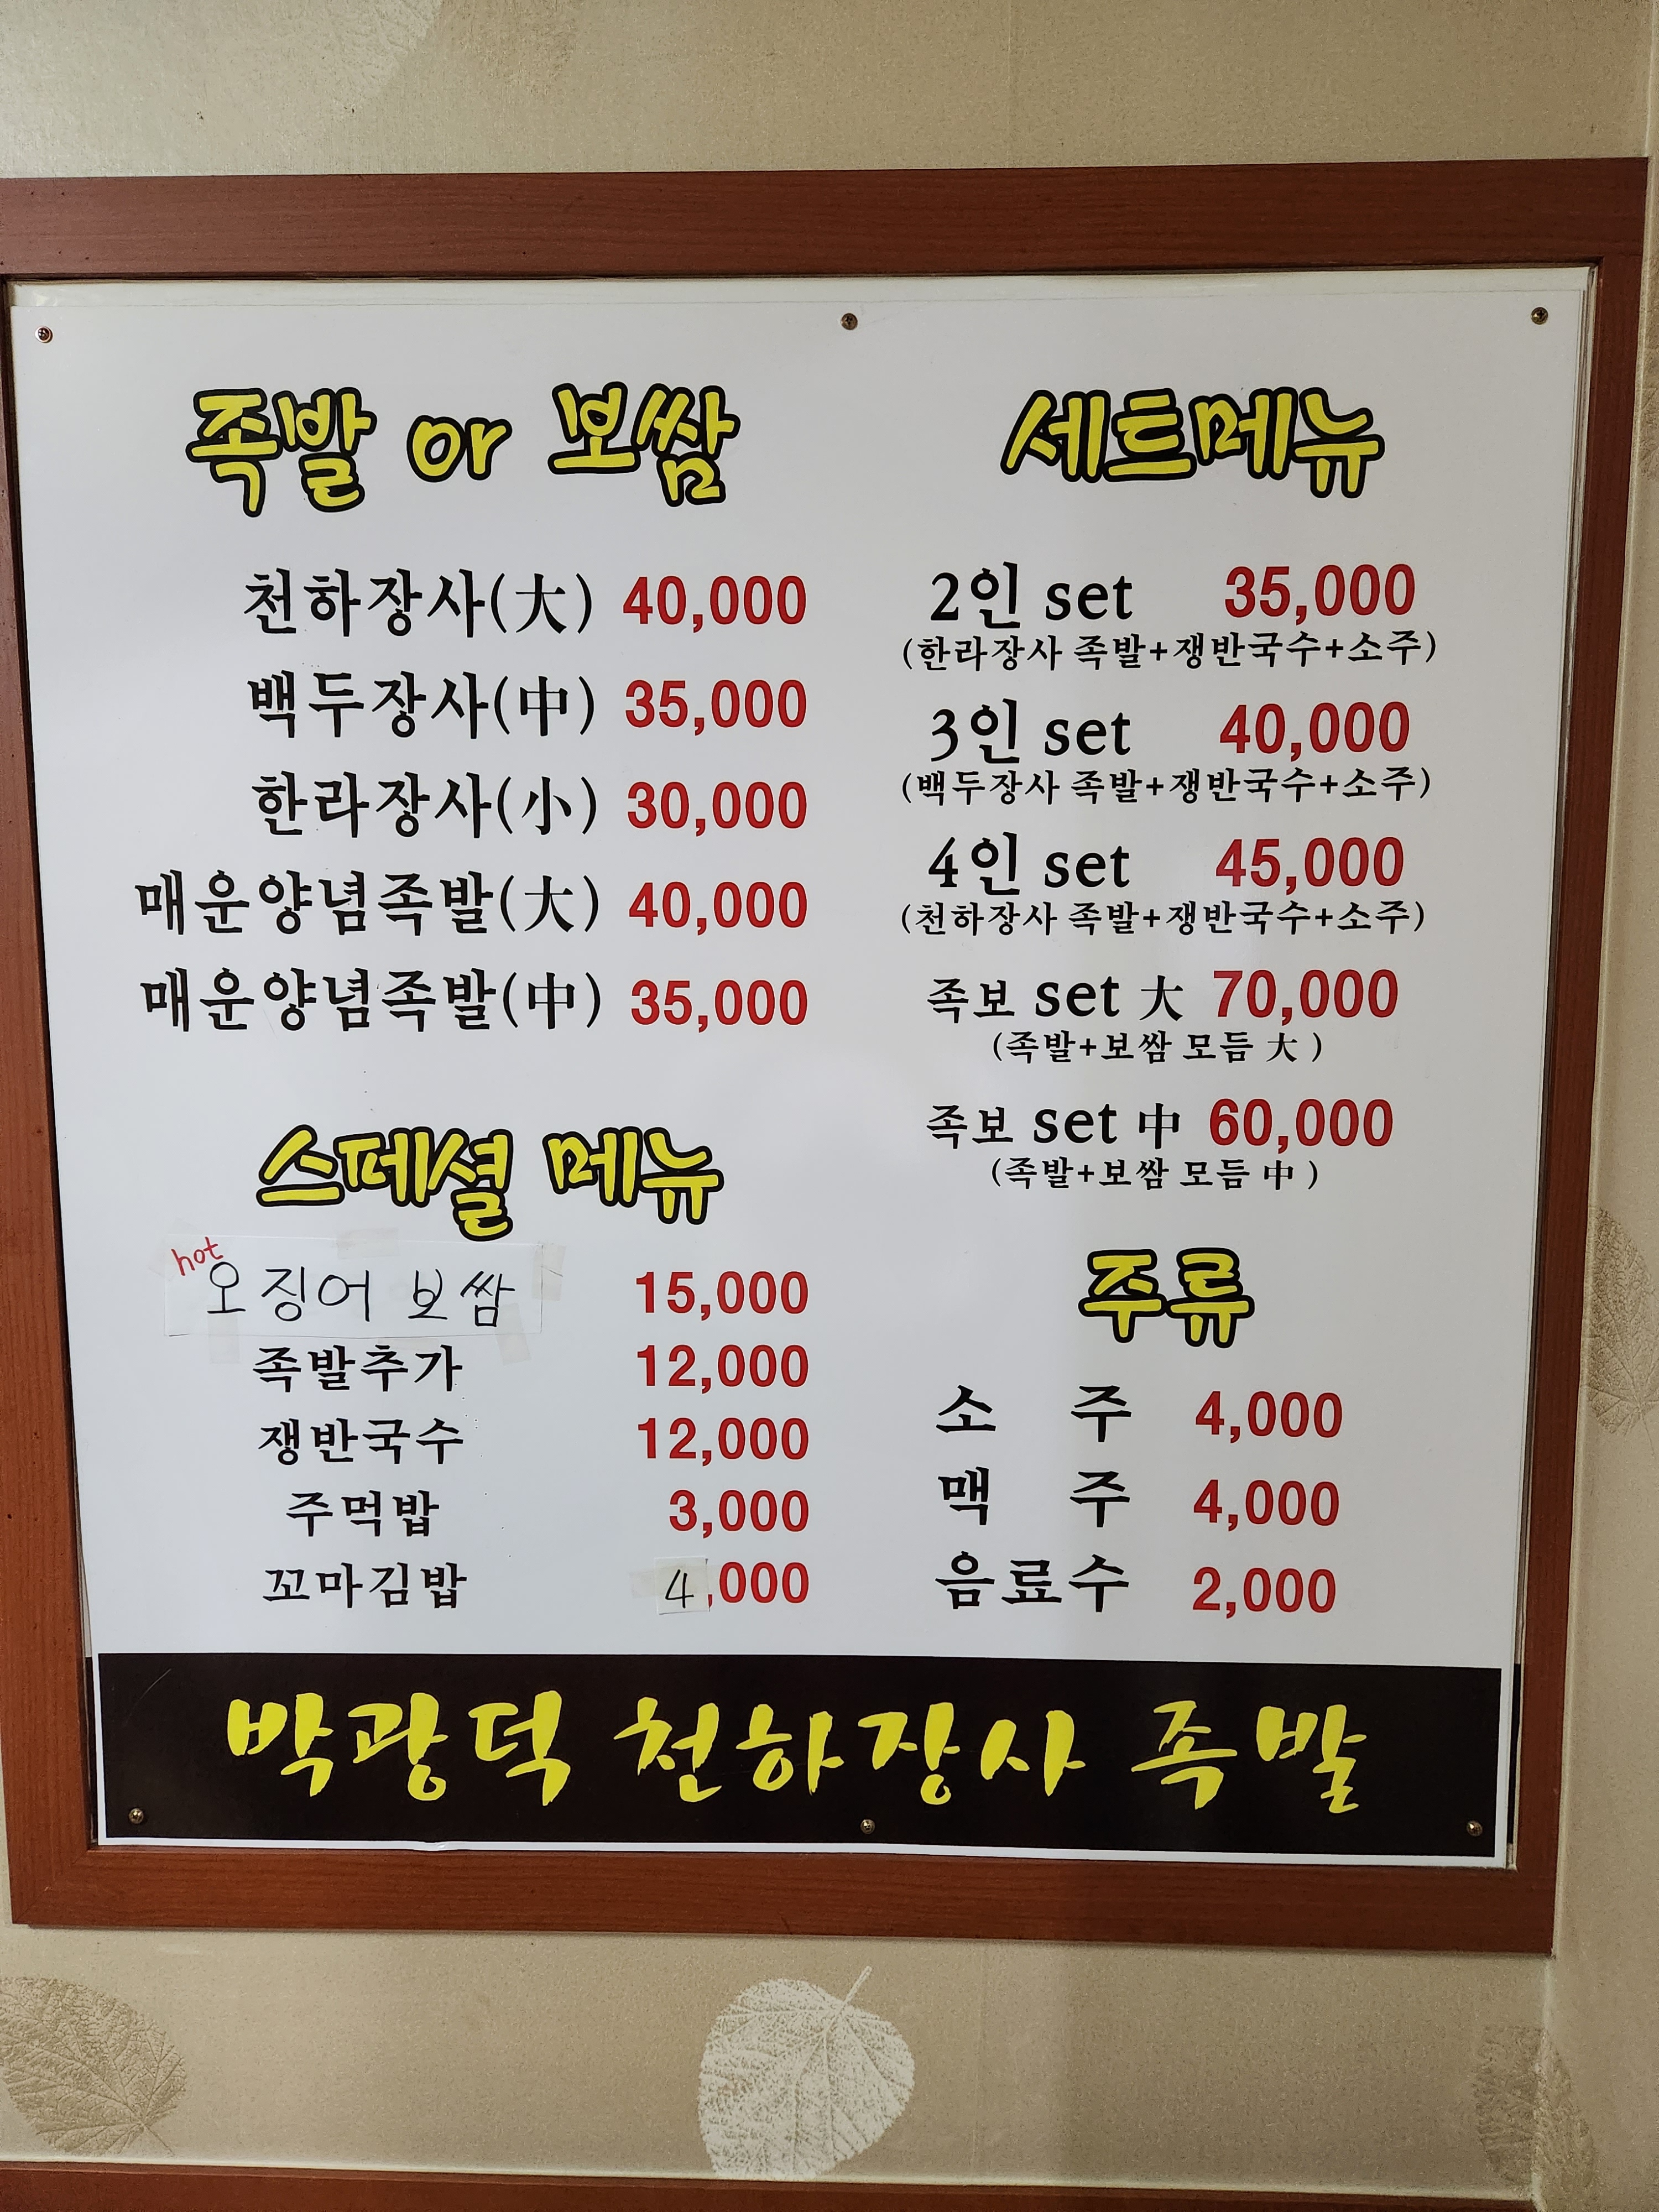 족발 or 보쌈
천하장사(大) 40,000
백두장사(中) 35,000
한라장사(小) 30,000
매운양념족발(大) 40,000
매운양념족발(中) 35,000
스페셜 메뉴
hot
오징어 보쌈 15,000
족발추가 12,000
쟁반국수 12,000
주먹밥 3,000
꼬마김밥 4,000
세트메뉴
2인 set 35,000
(한라장사 족발+쟁반국수+소주)
3인 set 40,000
(백두장사 족발+쟁반국수+소주)
4인 set 45,000
(천하장사 족발+쟁반국수+소주)
족보 set 大 70,000
(족발+보쌈 모듬 大 )
족보 set 中 60,000
(족발+보쌈 모듬 中 )
주류
소 주 4,000
맥 주 4,000
음료수 2,000
박광덕 천하장사 족발